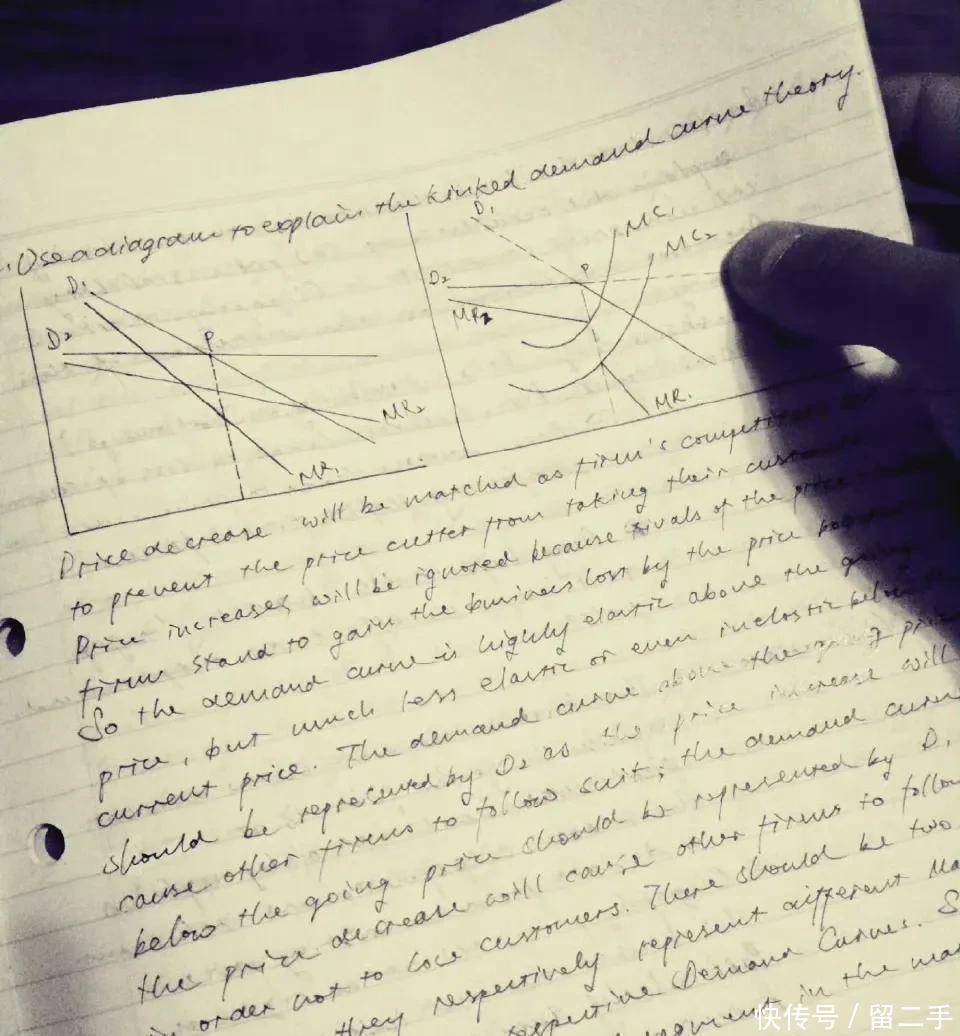 Use a diagram to explain the kinked demand curve theory.
D1
D2
P
MR2
MR1
D1
D2
MR2
P
MC1
MC2
MR1
Price decrease will be matched as firm's
to prevent the price cutter from taking their
Price increases will be ignored because rivals of the price
firms stand to gain the business lost by the price
So the demand curve is highly elastic above the going
price, but much less elastic or even inelastic below
current price. The demand curve above the going price
should be represented by D2 as the price increase will
cause other firms to follow suit; the demand curve
below the going price should be represented by D1
the price decrease will cause other firms to follow
in order not to lose customers. There should be two
they respectively represent different
Demand Curves.
in the
快传号/留二手